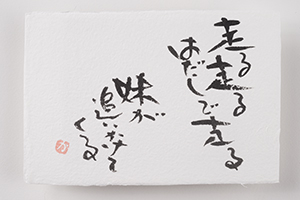 走る走る
はだしで走る
妹が
追いかけて
くる